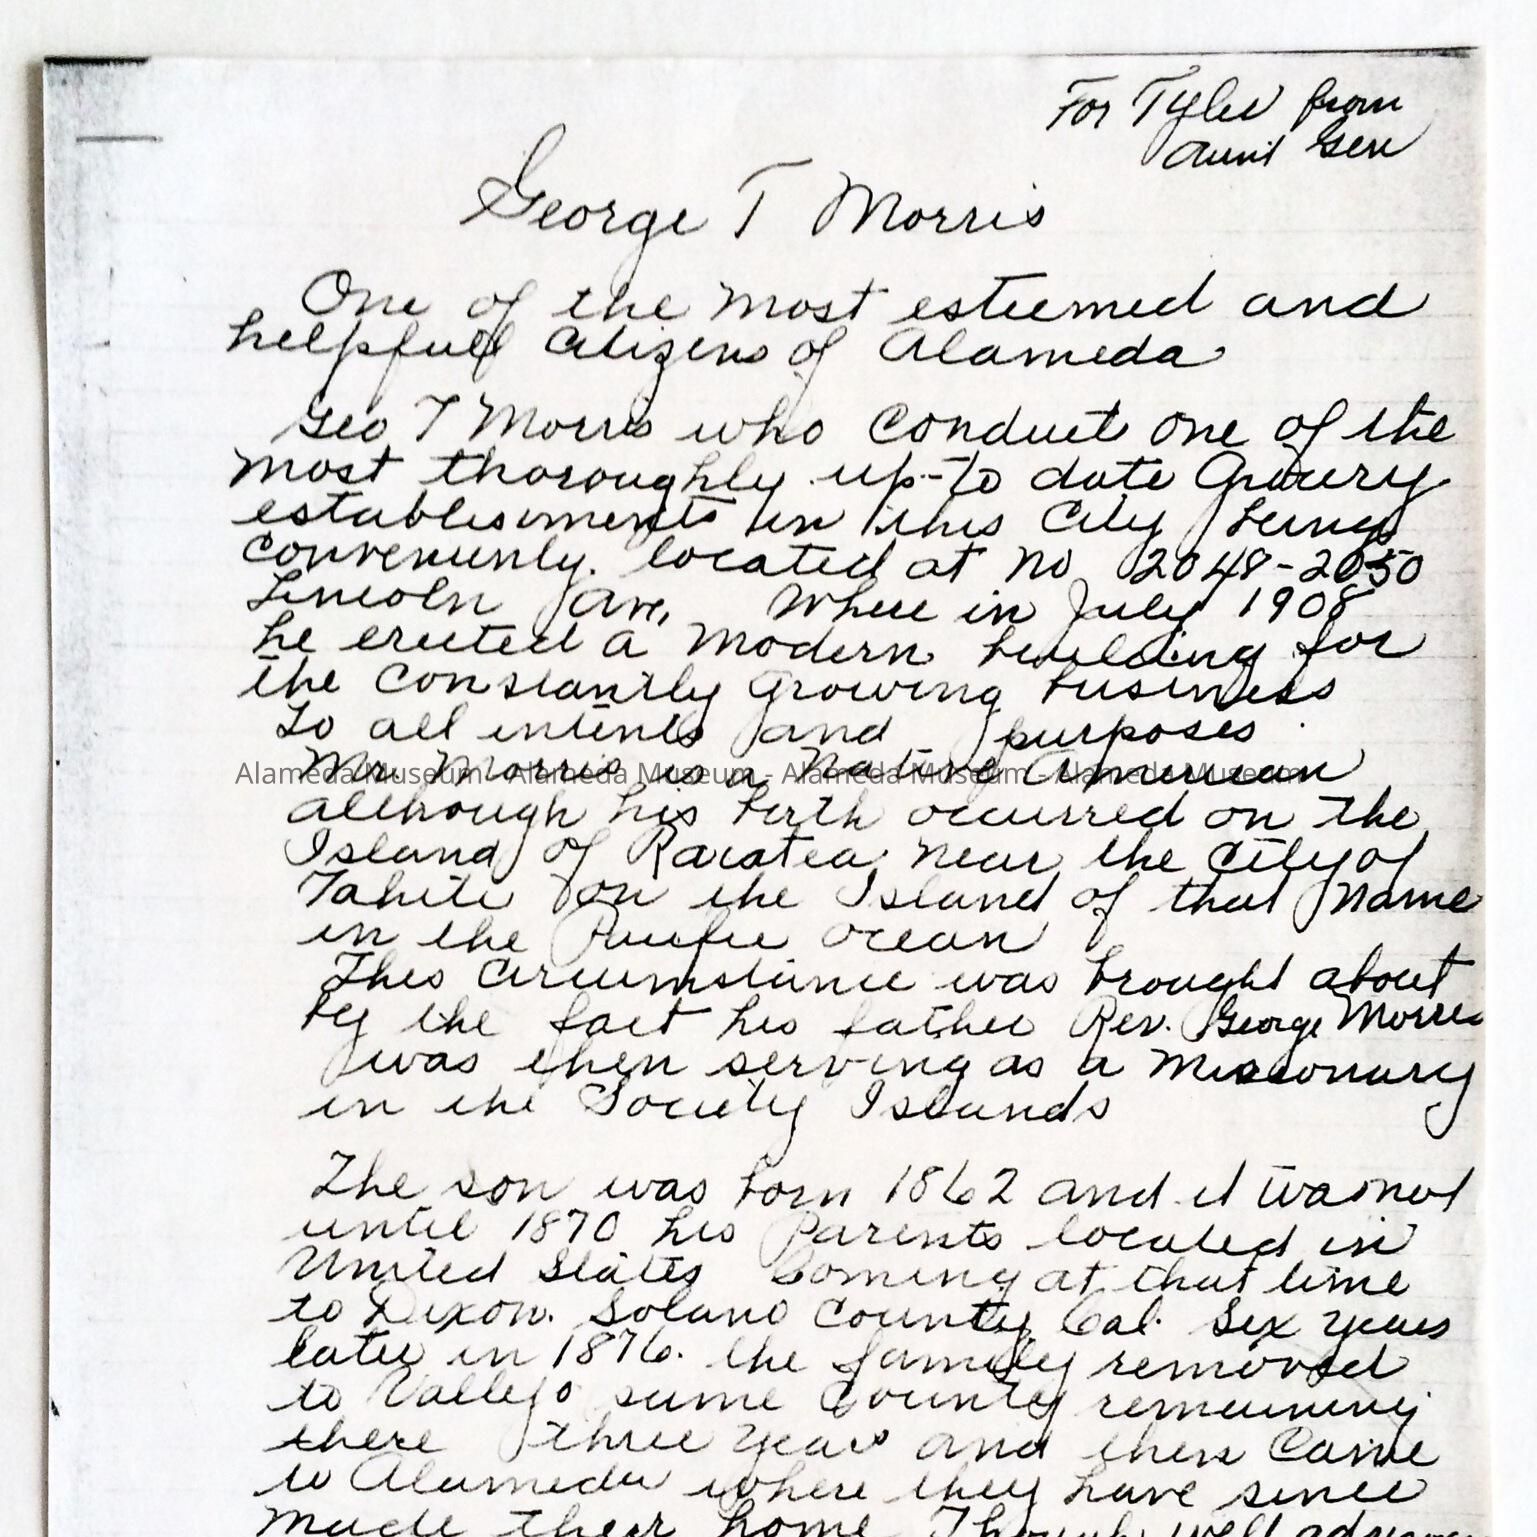 For Tyler from
Aunt Gen
George T Morris
One of the most esteemed and
helpfull Citizens of Alameda
Geo T Morris who conduct one of the
most thoroughly up-to date Grocery
establisments in this City being
conveniently. located at no 2048-2050
Lincoln Ave, Where in July 1908
he erected a modern building for
the constantly growing business
to all intents and purposes
Mr. Morris is a Native American
Alameda Museum - Alameda Museum - Alameda Museum - Alameda Museum
although his birth occurred on the
Island of Raiatea, near the City of
Tahiti on the Island of that name
in the Pacific ocean
This circumstance was brought about
by the fact his father Rev. George Morris
was then serving as a missionary
in the Society Islands
The son was born 1862 and it was not
until 1870 his Parents located in
United States Coming at that time
to Dixon. Solano County Cal. Six years
later in 1876. the family removed
to Vallejo same County remaining
there three years and then came
to Alameda where they have since
made their home Though well